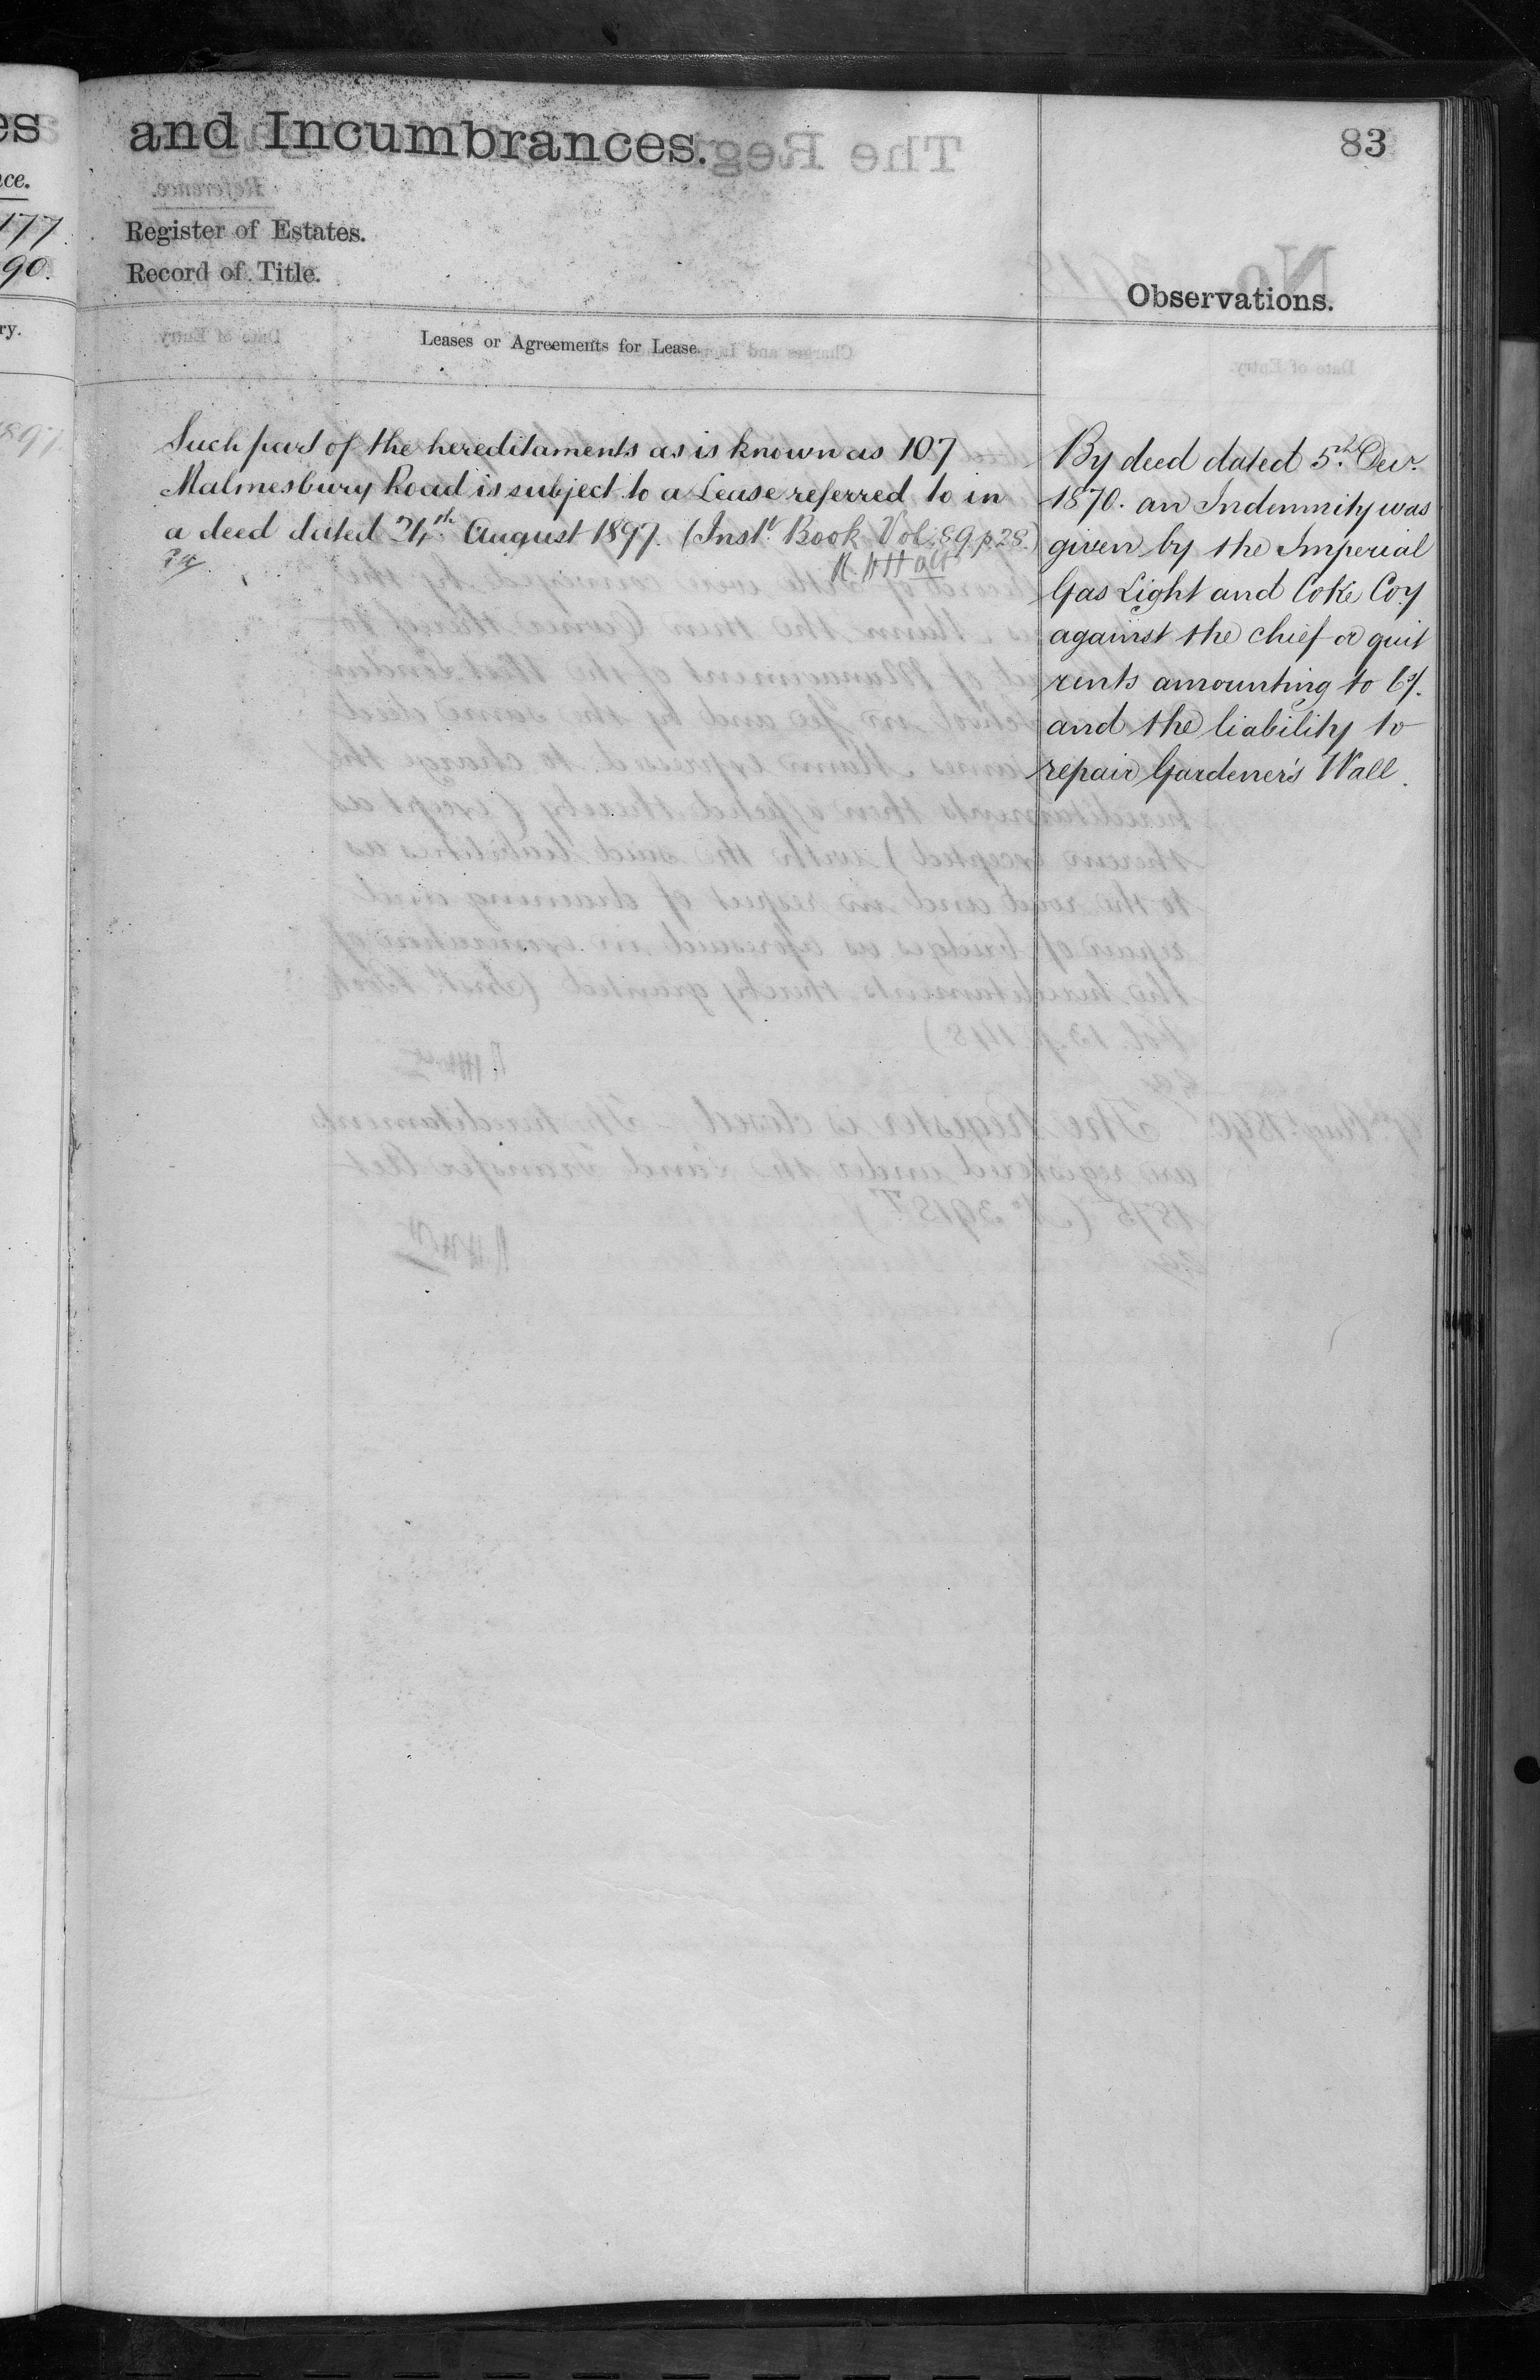 and Incumbrances.
83
Register of Estates.
Record of Title.
Observations.
Leases or Agreements for Lease.
Such part of the hereditaments as is known as 107
Malmesbury Road is subject to a Lease referred to in
a deed dated 24th August 1897. (Inst. Book Vol. 89 p 28.)
By deed dated 5th Decr.
1870. an Indemnity was
given by the Imperial
Gas Light and Coke Coy
against the chief or quit
rents amounting to 6/.
and the liability to
repair Gardener's Wall.
es
nce.
177
90.
ry.
1897